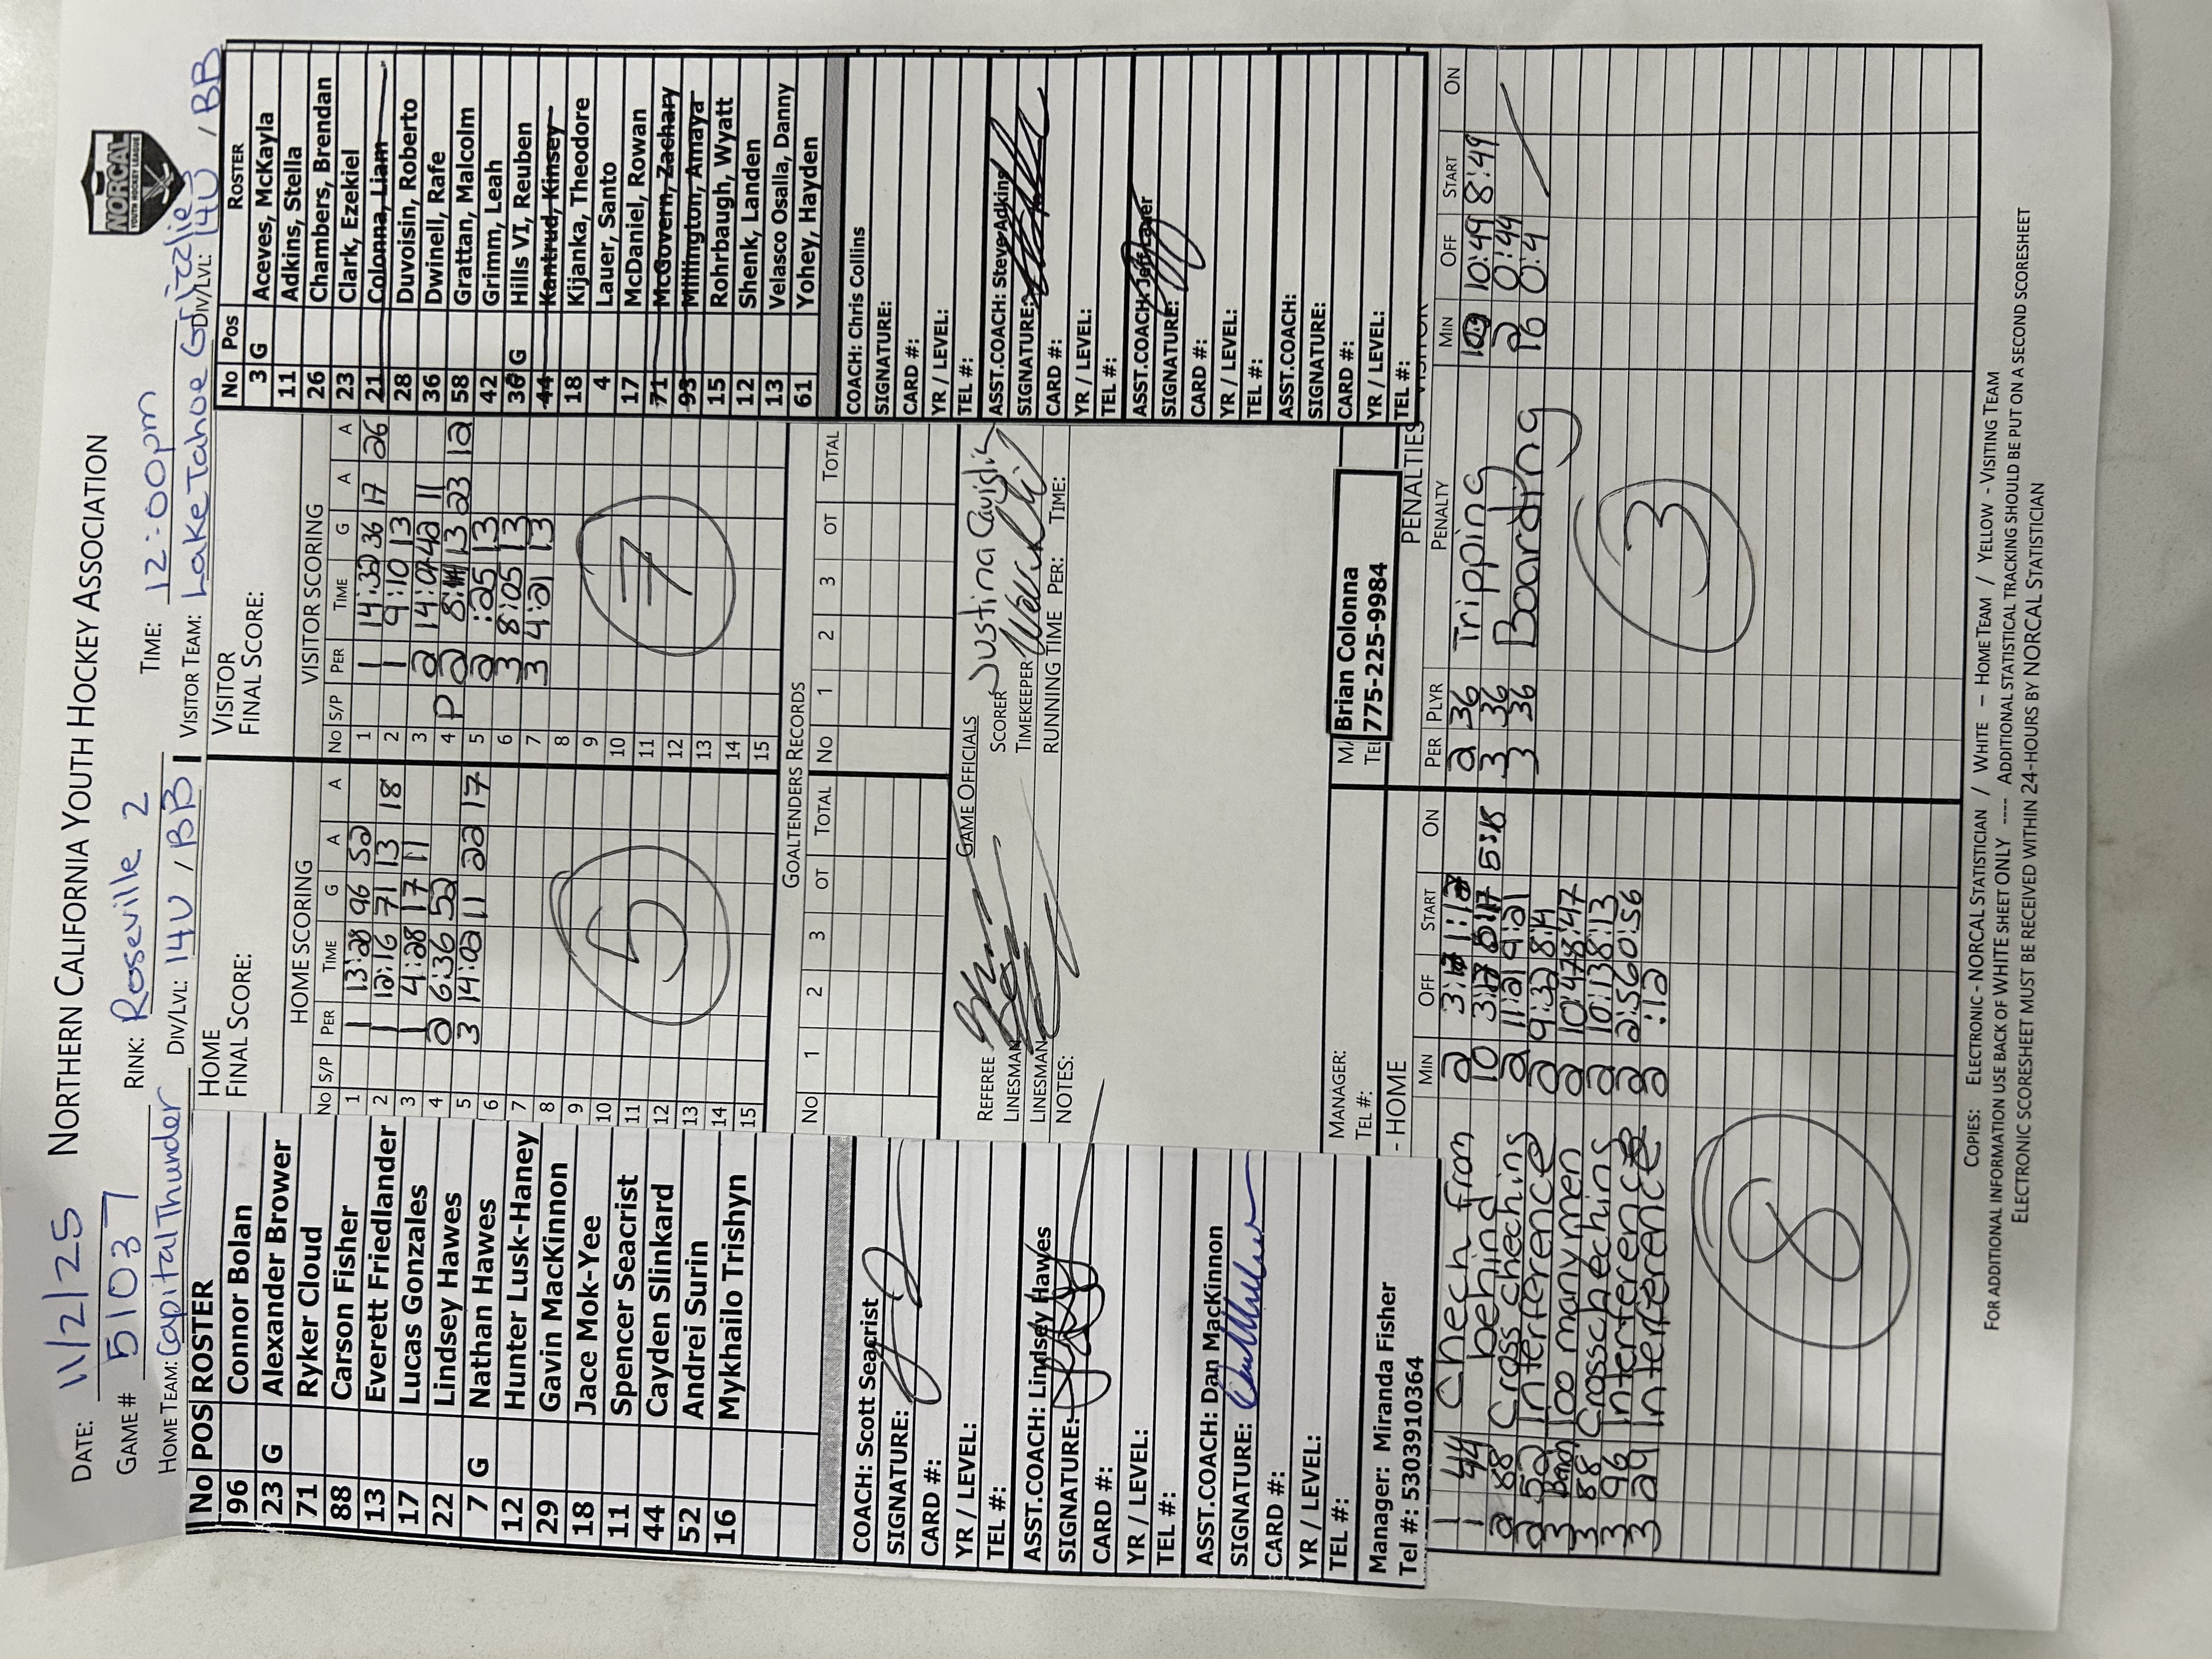 DATE: 11/2/25 NORTHERN CALIFORNIA YOUTH HOCKEY ASSOCIATION
NORCAL
YOUTH HOCKEY LEAGUE
GAME # 51037 RINK: Roseville 2 TIME: 12:00pm
HOME TEAM: Capital Thunder DIV/LVL: 14U / BB VISITOR TEAM: Lake Tahoe Grizzlie DIV/LVL: 14U / BB
No POS ROSTER
96 Connor Bolan
23 G Alexander Brower
71 Ryker Cloud
88 Carson Fisher
13 Everett Friedlander
17 Lucas Gonzales
22 Lindsey Hawes
7 G Nathan Hawes
12 Hunter Lusk-Haney
29 Gavin MacKinnon
18 Jace Mok-Yee
11 Spencer Seacrist
44 Cayden Slinkard
52 Andrei Surin
16 Mykhailo Trishyn
COACH: Scott Seacrist
SIGNATURE:
CARD #:
YR / LEVEL:
TEL #:
ASST.COACH: Lindsey Hawes
SIGNATURE:
CARD #:
YR / LEVEL:
TEL #:
ASST.COACH: Dan MacKinnon
SIGNATURE:
CARD #:
YR / LEVEL:
TEL #:
Manager: Miranda Fisher
Tel #: 5303910364
HOME
FINAL SCORE:
HOME SCORING
No S/P PER TIME G A A
1 1 13:28 96 52
2 1 12:16 71 13 18
3 1 4:28 17 11
4 2 6:36 52
5 3 14:02 11 22 17
6
7
8
9
10
11
12
13
14
15
5
VISITOR
FINAL SCORE:
VISITOR SCORING
No S/P PER TIME G A A
1 1 14:32 36 17 26
2 1 9:10 13
3 2 14:07 42 11
4 P 2 13 23 12
5 2 :25 13
6 3 8:05 13
7 3 4:21 13
8
9
10
11
12
13
14
15
7
GOALTENDERS RECORDS
No 1 2 3 OT TOTAL No 1 2 3 OT TOTAL
GAME OFFICIALS
REFEREE
LINESMAN
LINESMAN
NOTES:
SCORER Justina
TIMEKEEPER
RUNNING TIME PER: TIME:
MANAGER:
TEL #:
Brian Colonna
775-225-9984
No Pos ROSTER
3 G Aceves, McKayla
11 Adkins, Stella
26 Chambers, Brendan
23 Clark, Ezekiel
21 Colonna, Liam
28 Duvoisin, Roberto
36 Dwinell, Rafe
58 Grattan, Malcolm
42 Grimm, Leah
30 G Hills VI, Reuben
44 Kantrud, Kinsey
18 Kijanka, Theodore
4 Lauer, Santo
17 McDaniel, Rowan
71 McGovern, Zachary
93 Millington, Amaya
15 Rohrbaugh, Wyatt
12 Shenk, Landen
13 Velasco Osalla, Danny
61 Yohey, Hayden
COACH: Chris Collins
SIGNATURE:
CARD #:
YR / LEVEL:
TEL #:
ASST.COACH: Steve Adkins
SIGNATURE:
CARD #:
YR / LEVEL:
TEL #:
ASST.COACH: Jeff Lauer
SIGNATURE:
CARD #:
YR / LEVEL:
TEL #:
ASST.COACH:
SIGNATURE:
CARD #:
YR / LEVEL:
TEL #:
- HOME PENALTIES VISITOR
MIN OFF START ON
1 44 Check from 2 3:17 1:17
1 behind 10 3:17 5:18
2 88 Cross checking 2 11:21 9:21
2 52 Interference 2 9:32 8:14
3 Bench Too many men 2 10:47 8:47
3 88 Cross checking 2 10:13 8:13
3 96 Interference 2 2:56 0:56
3 29 Interference 2 :12
8
PER PLYR PENALTY MIN OFF START ON
2 36 Tripping 10:49 8:49
3 36 Boarding 2 0:44
3 36 10 0:4
3
COPIES: ELECTRONIC - NORCAL STATISTICIAN / WHITE – HOME TEAM / YELLOW - VISITING TEAM
FOR ADDITIONAL INFORMATION USE BACK OF WHITE SHEET ONLY ---- ADDITIONAL STATISTICAL TRACKING SHOULD BE PUT ON A SECOND SCORESHEET
ELECTRONIC SCORESHEET MUST BE RECEIVED WITHIN 24-HOURS BY NORCAL STATISTICIAN